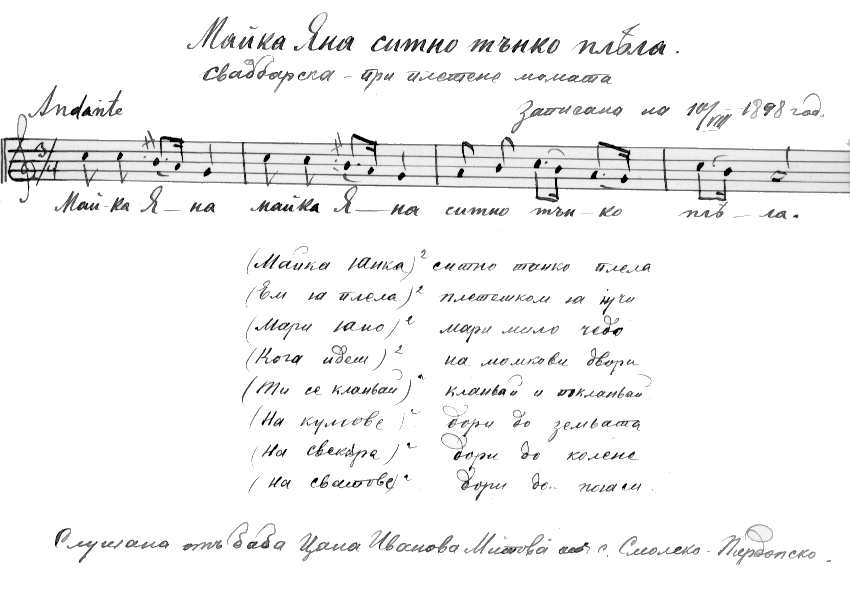 Майка Яна ситно тънко плѣла.
Свадбарска - при плетене момата
Andante
Записана на 10/VIII - 1898 год.
3/4
Май-ка Я-на майка Я-на ситно тън-ко плѣ-ла.
(Майка Юнка)² ситно танко плела
(Ем ю плела)² плетешком ю учи
(Мари Юно)² мари мило чедо
(Кога идеш)² на момкови двори
(Ти се кланвай)² кланвай и покланвай
(На кумове)² дори до земьата
(На свекъра)² дори до колене
(На сватове)² дори до появи
Слушана отъ баба Цана Иванова Митова от с. Смолско - Пирдопско.